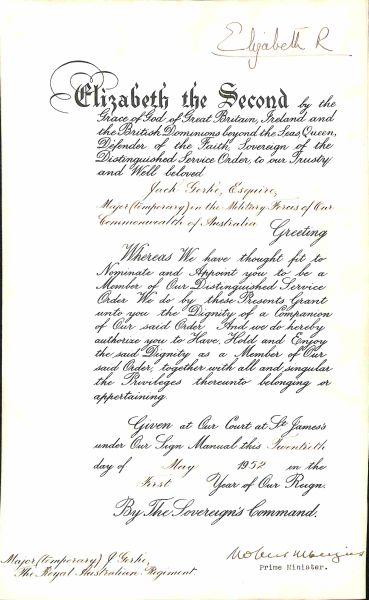 Elizabeth R
Elizabeth the Second by the
Grace of God of Great Britain, Ireland and
the British Dominions beyond the Seas Queen,
Defender of the Faith, Sovereign of the
Distinguished Service Order, to our Trusty
and Well beloved
Jack Gerke, Esquire,
Major (temporary) in the Military Forces of Our
Commonwealth of Australia
Greeting
Whereas We have thought fit to
Nominate and Appoint you to be a
Member of Our Distinguished Service
Order We do by these Presents Grant
unto you the Dignity of a Companion
of Our said Order And we do hereby
authorize you to Have, Hold and Enjoy
the said Dignity as a Member of Our
said Order, together with all and singular
the Privileges thereunto belonging or
appertaining.
Given at Our Court at St James's
under Our Sign Manual this Twentieth
day of May 1952 in the
First Year of Our Reign.
By The Sovereign's Command.
Major (temporary) J Gerke,
The Royal Australian Regiment.
Robert Menzies
Prime Minister.